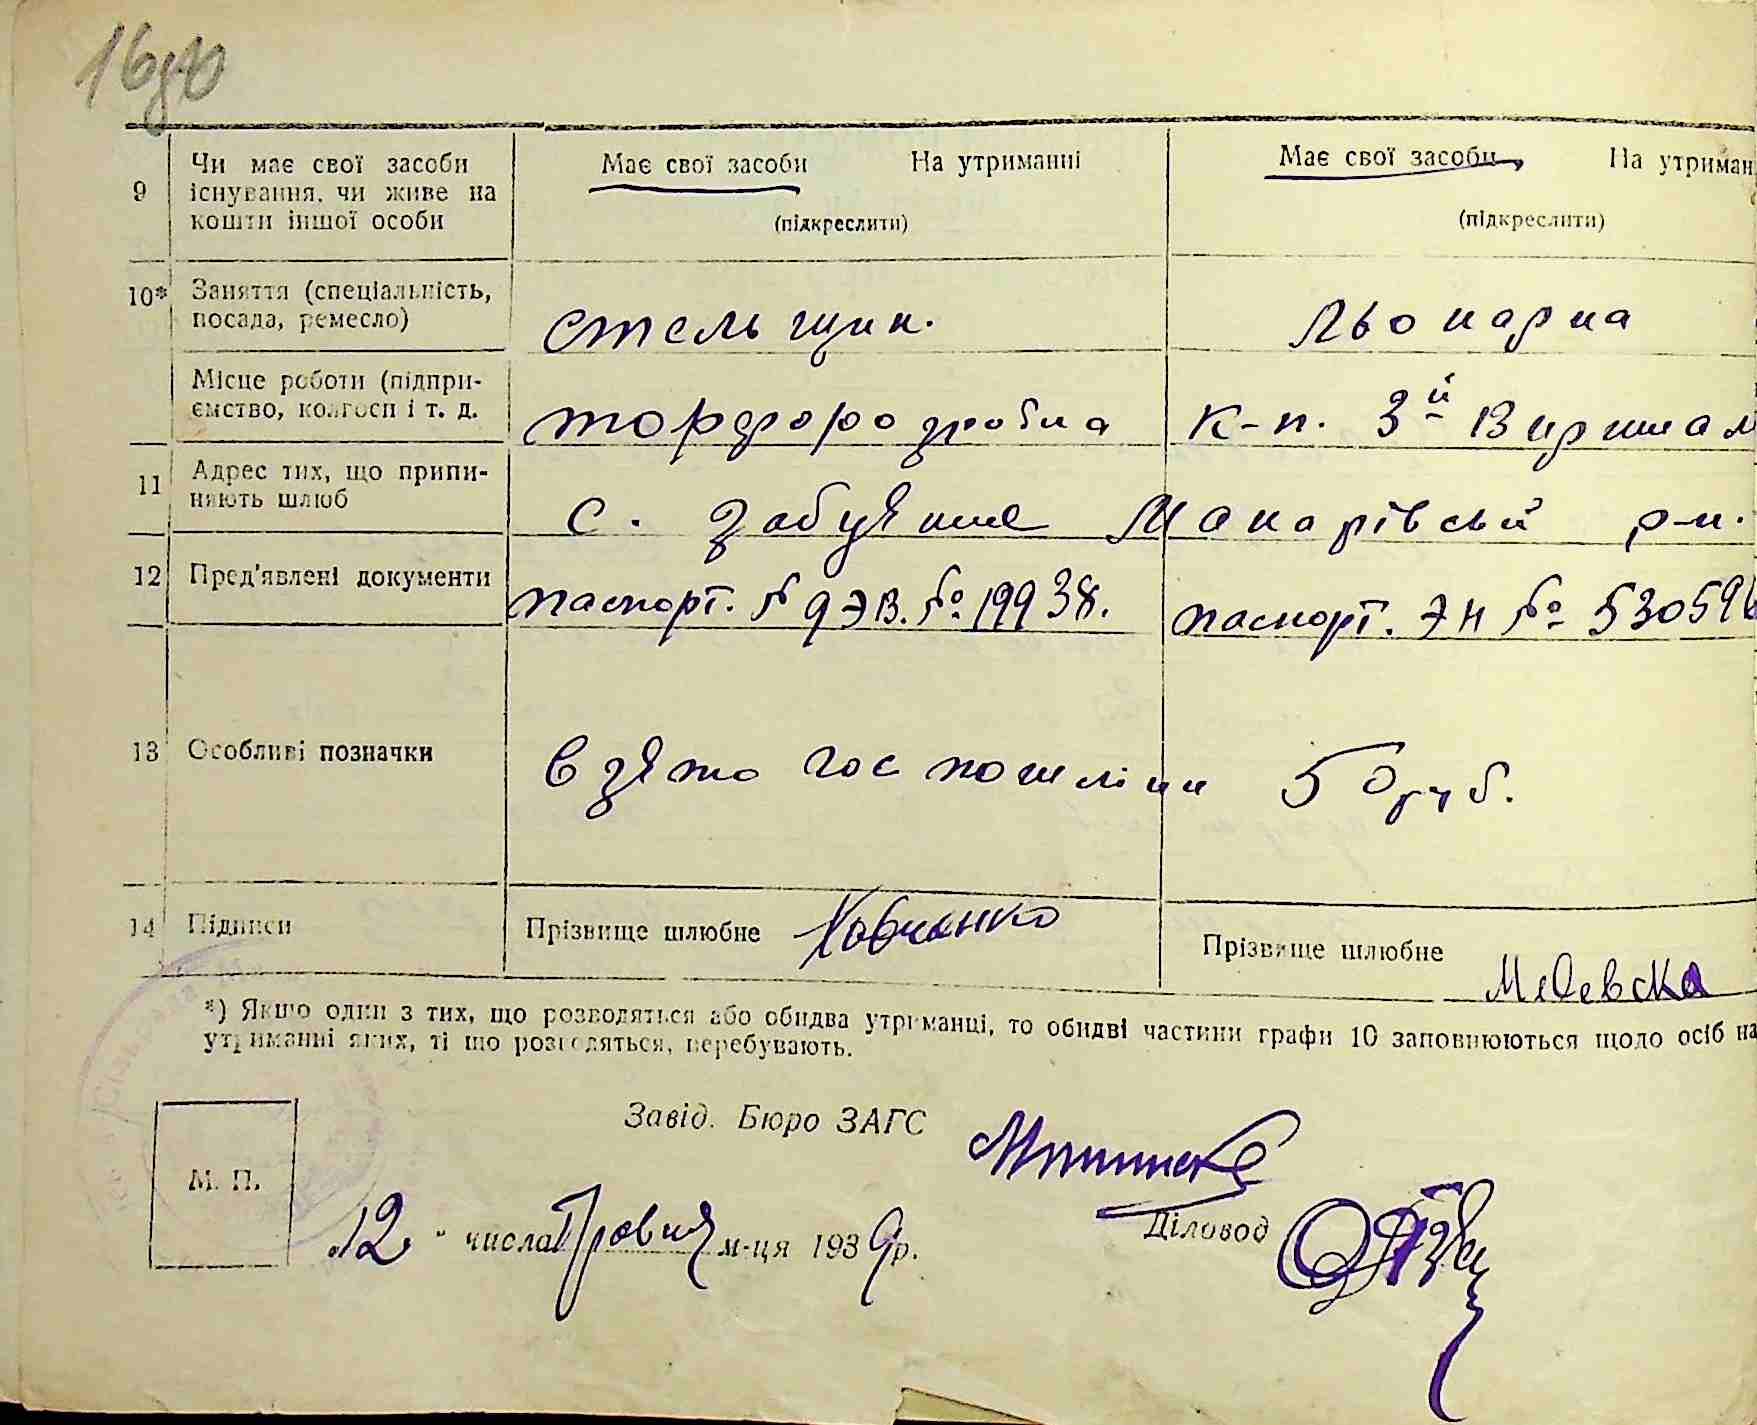 9 Чи має свої засоби існування, чи живе на кошти іншої особи
Має свої засоби На утриманні
(підкреслити)
Має свої засоби На утриман
(підкреслити)
10* Заняття (спеціальність, посада, ремесло)
стельщик.
Льонарка
Місце роботи (підприємство, колгосп і т. д.
торфорозробка
к-п. 3й Виришал
11 Адрес тих, що припиняють шлюб
с. Забуяння Макарівськ р-н.
12 Пред'явлені документи
паспорт. № 9 ЭВ. № 19938.
паспорт. ЭН № 530596
13 Особливі позначки
взято гос пошліни 50 руб.
14 Підписи
Прізвище шлюбне
Прізвище шлюбне
*) Якщо один з тих, що розводяться або обидва утриманці, то обидві частини графи 10 заповнюються щодо осіб на
утриманні яких, ті що розводяться, перебувають.
Завід. Бюро ЗАГС
М. П.
"12" числа Травня м-ця 1939р.
Діловод